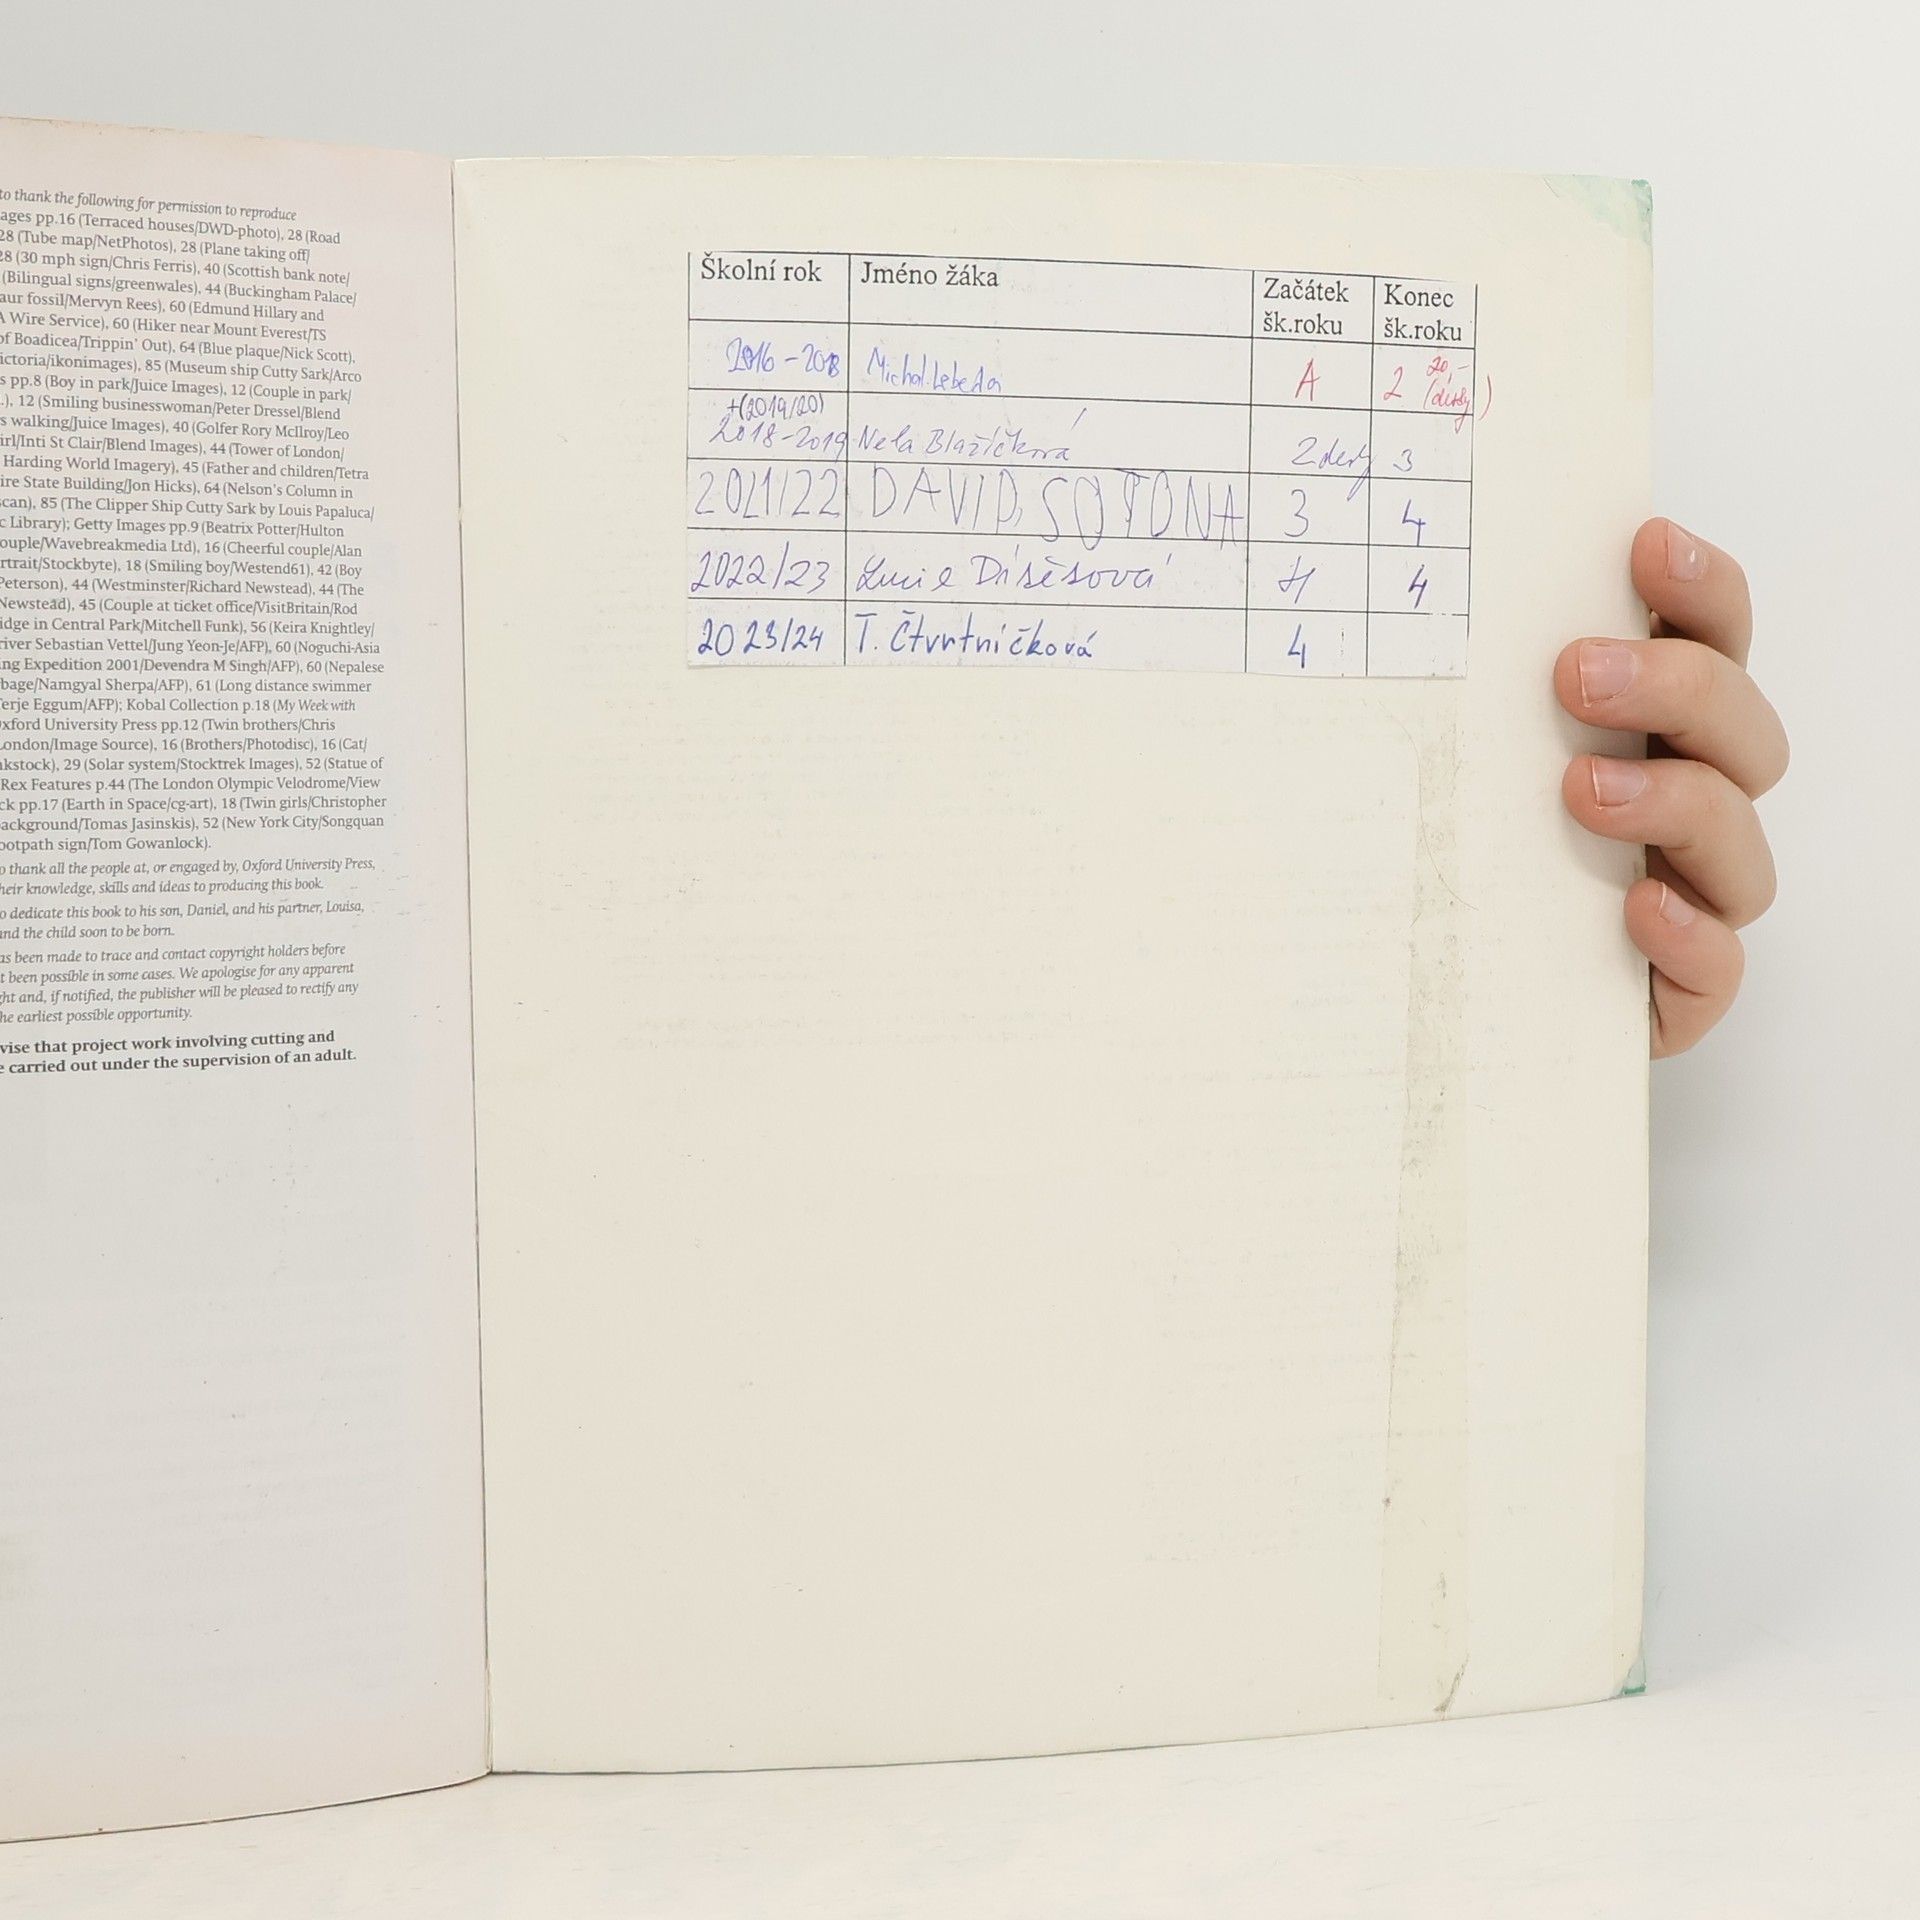 to thank the following for permission to reproduce
ages pp.16 (Terraced houses/DWD-photo), 28 (Road
28 (Tube map/NetPhotos), 28 (Plane taking off/
28 (30 mph sign/Chris Ferris), 40 (Scottish bank note/
(Bilingual signs/greenwales), 44 (Buckingham Palace/
aur fossil/Mervyn Rees), 60 (Edmund Hillary and
A Wire Service), 60 (Hiker near Mount Everest/TS
of Boadicea/Trippin' Out), 64 (Blue plaque/Nick Scott),
ictoria/ikonimages), 85 (Museum ship Cutty Sark/Arco
s pp.8 (Boy in park/Juice Images), 12 (Couple in park/
.), 12 (Smiling businesswoman/Peter Dressel/Blend
s walking/Juice Images), 40 (Golfer Rory McIlroy/Leo
irl/Inti St Clair/Blend Images), 44 (Tower of London/
Harding World Imagery), 45 (Father and children/Tetra
ire State Building/Jon Hicks), 64 (Nelson's Column in
scan), 85 (The Clipper Ship Cutty Sark by Louis Papaluca/
c Library); Getty Images pp.9 (Beatrix Potter/Hulton
ouple/Wavebreakmedia Ltd), 16 (Cheerful couple/Alan
rtrait/Stockbyte), 18 (Smiling boy/Westend61), 42 (Boy
Peterson), 44 (Westminster/Richard Newstead), 44 (The
Newstead), 45 (Couple at ticket office/VisitBritain/Rod
idge in Central Park/Mitchell Funk), 56 (Keira Knightley/
river Sebastian Vettel/Jung Yeon-Je/AFP), 60 (Noguchi-Asia
ng Expedition 2001/Devendra M Singh/AFP), 60 (Nepalese
bage/Namgyal Sherpa/AFP), 61 (Long distance swimmer
Terje Eggum/AFP); Kobal Collection p.18 (My Week with
Oxford University Press pp.12 (Twin brothers/Chris
London/Image Source), 16 (Brothers/Photodisc), 16 (Cat/
nkstock), 29 (Solar system/Stocktrek Images), 52 (Statue of
Rex Features p.44 (The London Olympic Velodrome/View
ck pp.17 (Earth in Space/cg-art), 18 (Twin girls/Christopher
background/Tomas Jasinskis), 52 (New York City/Songquan
ootpath sign/Tom Gowanlock).
o thank all the people at, or engaged by, Oxford University Press,
heir knowledge, skills and ideas to producing this book.
o dedicate this book to his son, Daniel, and his partner, Louisa,
and the child soon to be born.
as been made to trace and contact copyright holders before
t been possible in some cases. We apologise for any apparent
ght and, if notified, the publisher will be pleased to rectify any
he earliest possible opportunity.
vise that project work involving cutting and
e carried out under the supervision of an adult.
Školní rok Jméno žáka Začátek šk.roku Konec šk.roku
2016-2018 Michal Lebeda A 2 20,-
+(2019/20)
2018-2019 Nela Blažíčková 2 3
2021/22 DAVID SOTONA 3 4
2022/23 Lucie 4
2023/24 T. Čtvrtníčková 4